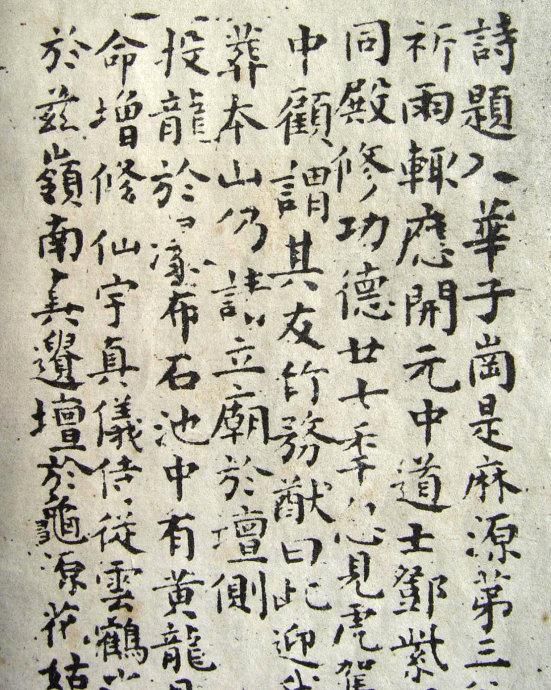 詩題入華子崗是麻源第三
祈雨輒應開元中道士鄧紫
同殿修功德廿七秊忽見虎駕
中顧謂其友竹務猷曰此迎我
葬本山仍請立廟於壇側
投龍於瀑布石池中有黃龍見
命增修仙宇真儀侍從雲鶴
於茲嶺南真遺壇於龜源花姑